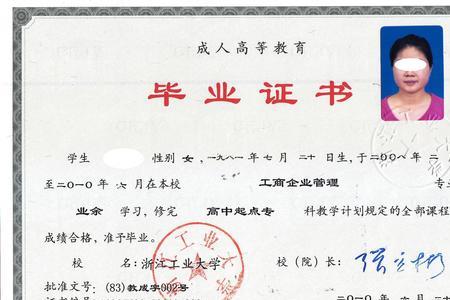 成人高等教育
毕业证书
学生 性别 女，一九八一年七月二十日生，于二〇〇八年二
至二〇一〇年六月在本校 工商企业管理 专
业余 学习，修完 高中起点专 科教学计划规定的全部课程
成绩合格，准予毕业。
校 名：浙江工业大学 校（院）长：
批准文号：(83)教成字002号